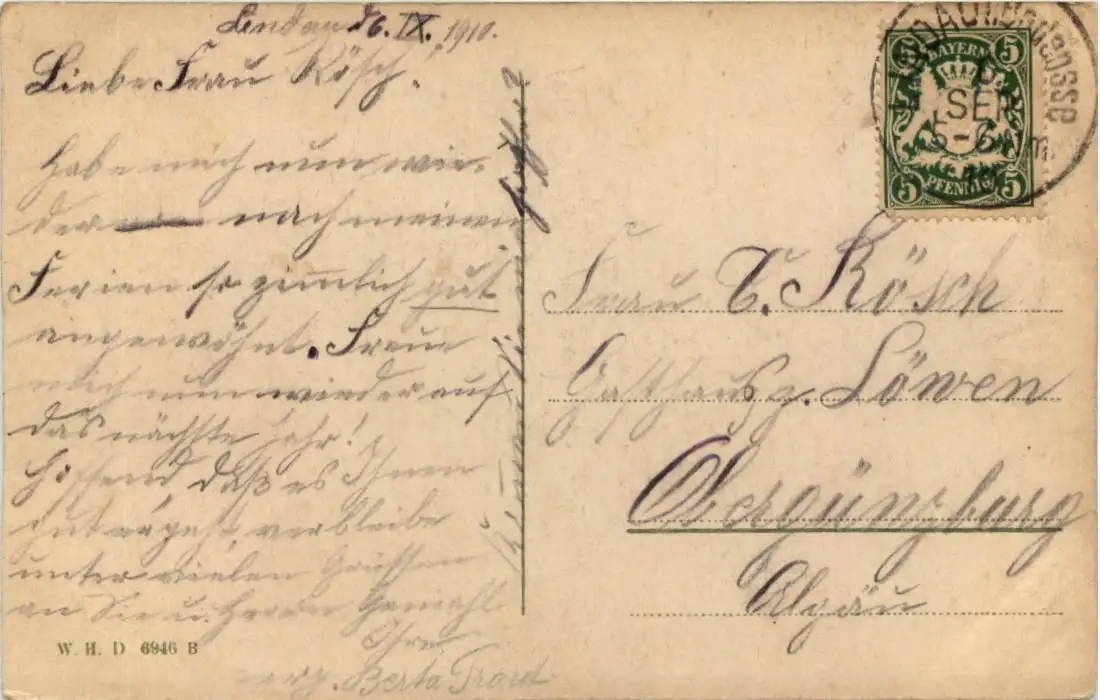 Lindau, d 6. IX. 1910.
Liebe Frau Rösch!
Habe mich nun wie-
der nach meinen
Ferien so zimmlich gut
angewöhnt. Freue
mich nun wieder auf
das nächste Jahr!
Hoffend, daß es Ihnen
gut ergeht, verbleibe
unter vielen Grüssen
an Sie u. Herrn Gemahl
Ihre
Berta
W. H. D 6946 B
LINDAU i. Bodensee
6.
SEP
5-6 Nm.
10
5 BAYERN 5
5 PFENNIG 5
Frau V. Rösch
Gasthaus z. Löwen
Obergünzburg
Algäu